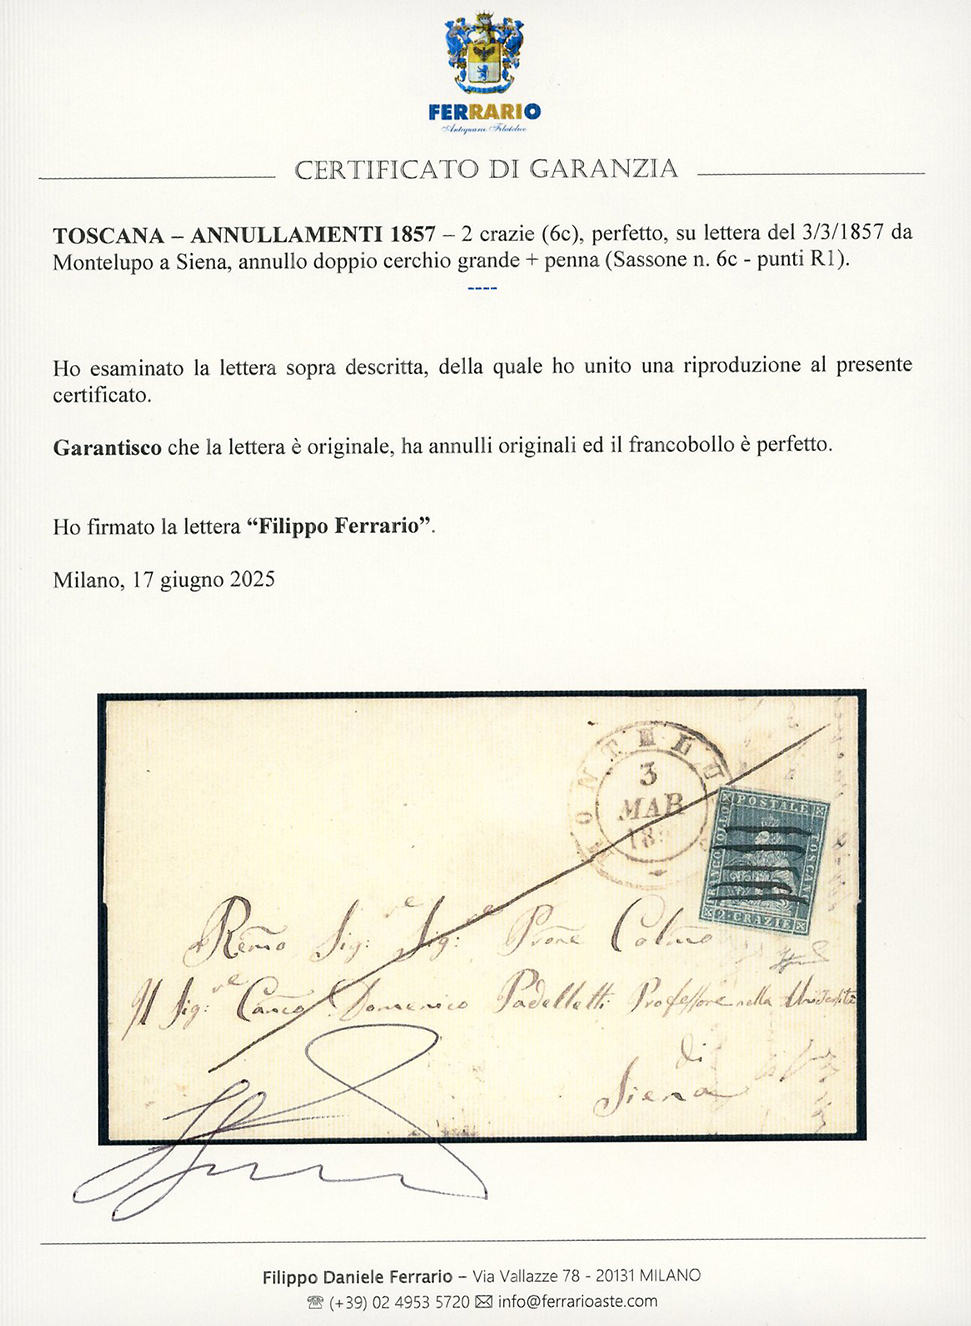 FERRARIO
Antiquario Filatelico
CERTIFICATO DI GARANZIA
TOSCANA – ANNULLAMENTI 1857 – 2 crazie (6c), perfetto, su lettera del 3/3/1857 da
Montelupo a Siena, annullo doppio cerchio grande + penna (Sassone n. 6c - punti R1).
----
Ho esaminato la lettera sopra descritta, della quale ho unito una riproduzione al presente
certificato.
Garantisco che la lettera è originale, ha annulli originali ed il francobollo è perfetto.
Ho firmato la lettera “Filippo Ferrario”.
Milano, 17 giugno 2025
MONTELU
3
MAR
185
FRANCOBOLLO
POSTALE
TOSCANO
2·CRAZIE
Remo Sig:re Sig:re Prone Colmo
Il Sig:re Canco Domenico Padelletti Professore nella Università
di
Siena
Filippo Daniele Ferrario – Via Vallazze 78 - 20131 MILANO
☏ (+39) 02 4953 5720 ✉ info@ferrarioaste.com